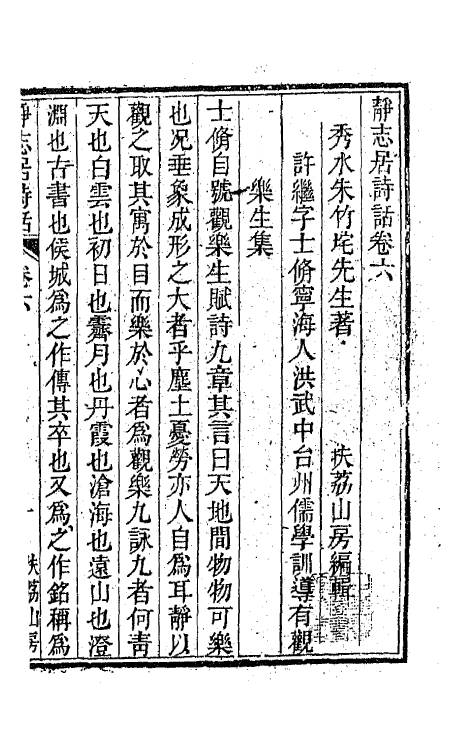 靜志居詩話卷六
秀水朱竹垞先生著 扶荔山房編輯
許繼字士脩寧海人洪武中台州儒學訓導有觀
樂生集
士脩自號觀樂生賦詩九章其言曰天地間物物可樂
也况垂象成形之大者乎塵土憂勞亦人自爲耳靜以
觀之取其寓於目而樂於心者爲觀樂九詠九者何靑
天也白雲也初日也霽月也丹霞也滄海也遠山也澄
淵也古書也侯城爲之作傳其卒也又爲之作銘稱爲
靜志居詩話 卷六 一 扶荔山房